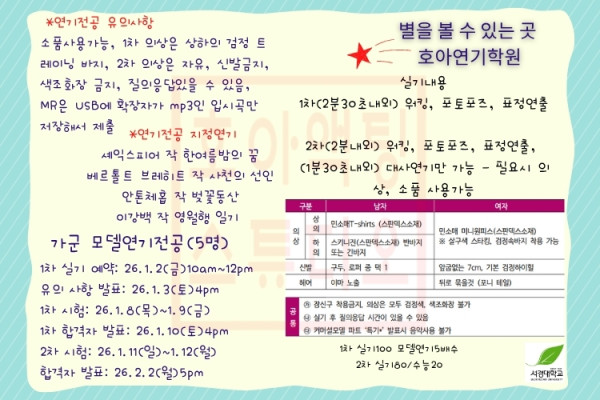 *연기전공 유의사항
소품사용가능, 1차 의상은 상하의 검정 트
레이닝 바지, 2차 의상은 자유, 신발금지,
색조화장 금지, 질의응답있을 수 있음,
MR은 USB에 확장자가 mp3인 입시곡만
저장해서 제출
*연기전공 지정연기
셰익스피어 작 한여름밤의 꿈
베르톨트 브레히트 작 사천의 선인
안톤체홉 작 벚꽃동산
이강백 작 영월행 일기
가군 모델연기전공(5명)
1차 실기 예약: 26.1.2(금)10am~12pm
유의 사항 발표: 26.1.3(토)4pm
1차 시험: 26.1.8(목)~1.9(금)
1차 합격자 발표: 26.1.10(토)4pm
2차 시험: 26.1.11(일)~1.12(월)
합격자 발표: 26.2.2(월)5pm
별을 볼 수 있는 곳
호아연기학원
실기내용
1차(2분30초내외) 워킹, 포토포즈, 표정연출
2차(2분내외) 워킹, 포토포즈, 표정연출,
(1분30초내외) 대사연기만 가능 - 필요시 의
상, 소품 사용가능
구분 남자 여자
의상 상의 민소매T-shirts (스판덱스소재) 민소매 미니원피스(스판덱스소재)
하의 스키니진(스판덱스소재) 반바지 또는 긴바지 ※ 살구색 스타킹, 검정속바지 착용 가능
신발 구두, 로퍼 중 택 1 앞굽없는 7cm, 기본 검정하이힐
헤어 이마 노출 뒤로 묶을것 (포니 테일)
공통 ㉮ 장신구 착용금지, 의상은 모두 검정색, 색조화장 불가
㉯ 실기 후 질의응답 시간이 있을 수 있음
㉰ 커머셜모델 파트 '특기*' 발표시 음악사용 불가
1차 실기100 모델연기15배수
2차 실기80/수능20
서경대학교
호아액팅
스튜디오